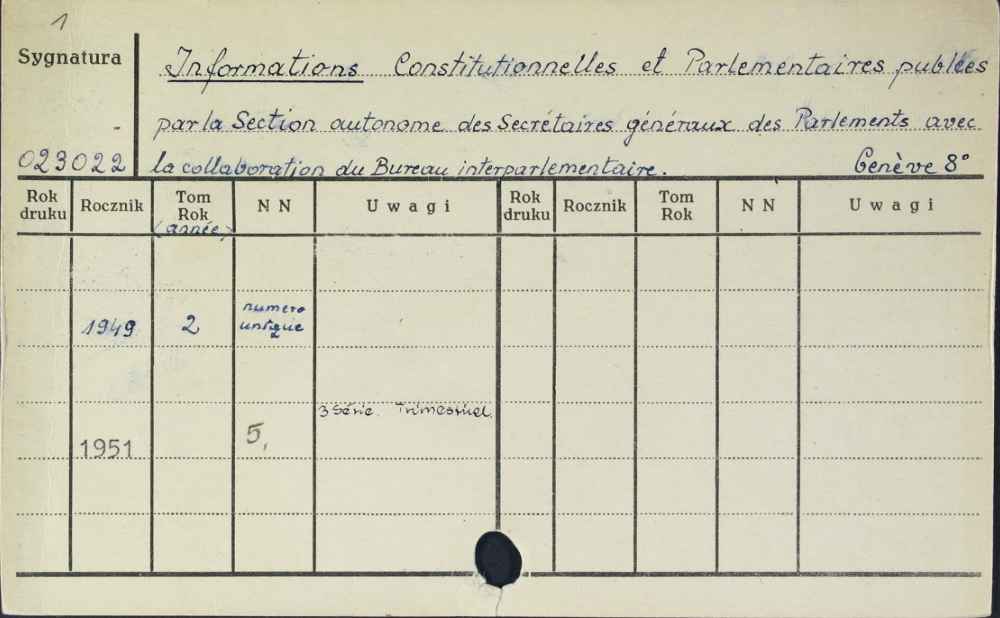 1
Sygnatura
Informations Constitutionnelles et Parlementaires publiées
par la Section autonome des Secrétaires généraux des Parlements avec
023022
la collaboration du Bureau interparlementaire. Genève 8°
Rok druku Rocznik Tom Rok N N Uwagi Rok druku Rocznik Tom Rok N N Uwagi
(année)
numero
1949 2 unique
3 Série. Trimestriel.
1951 5,